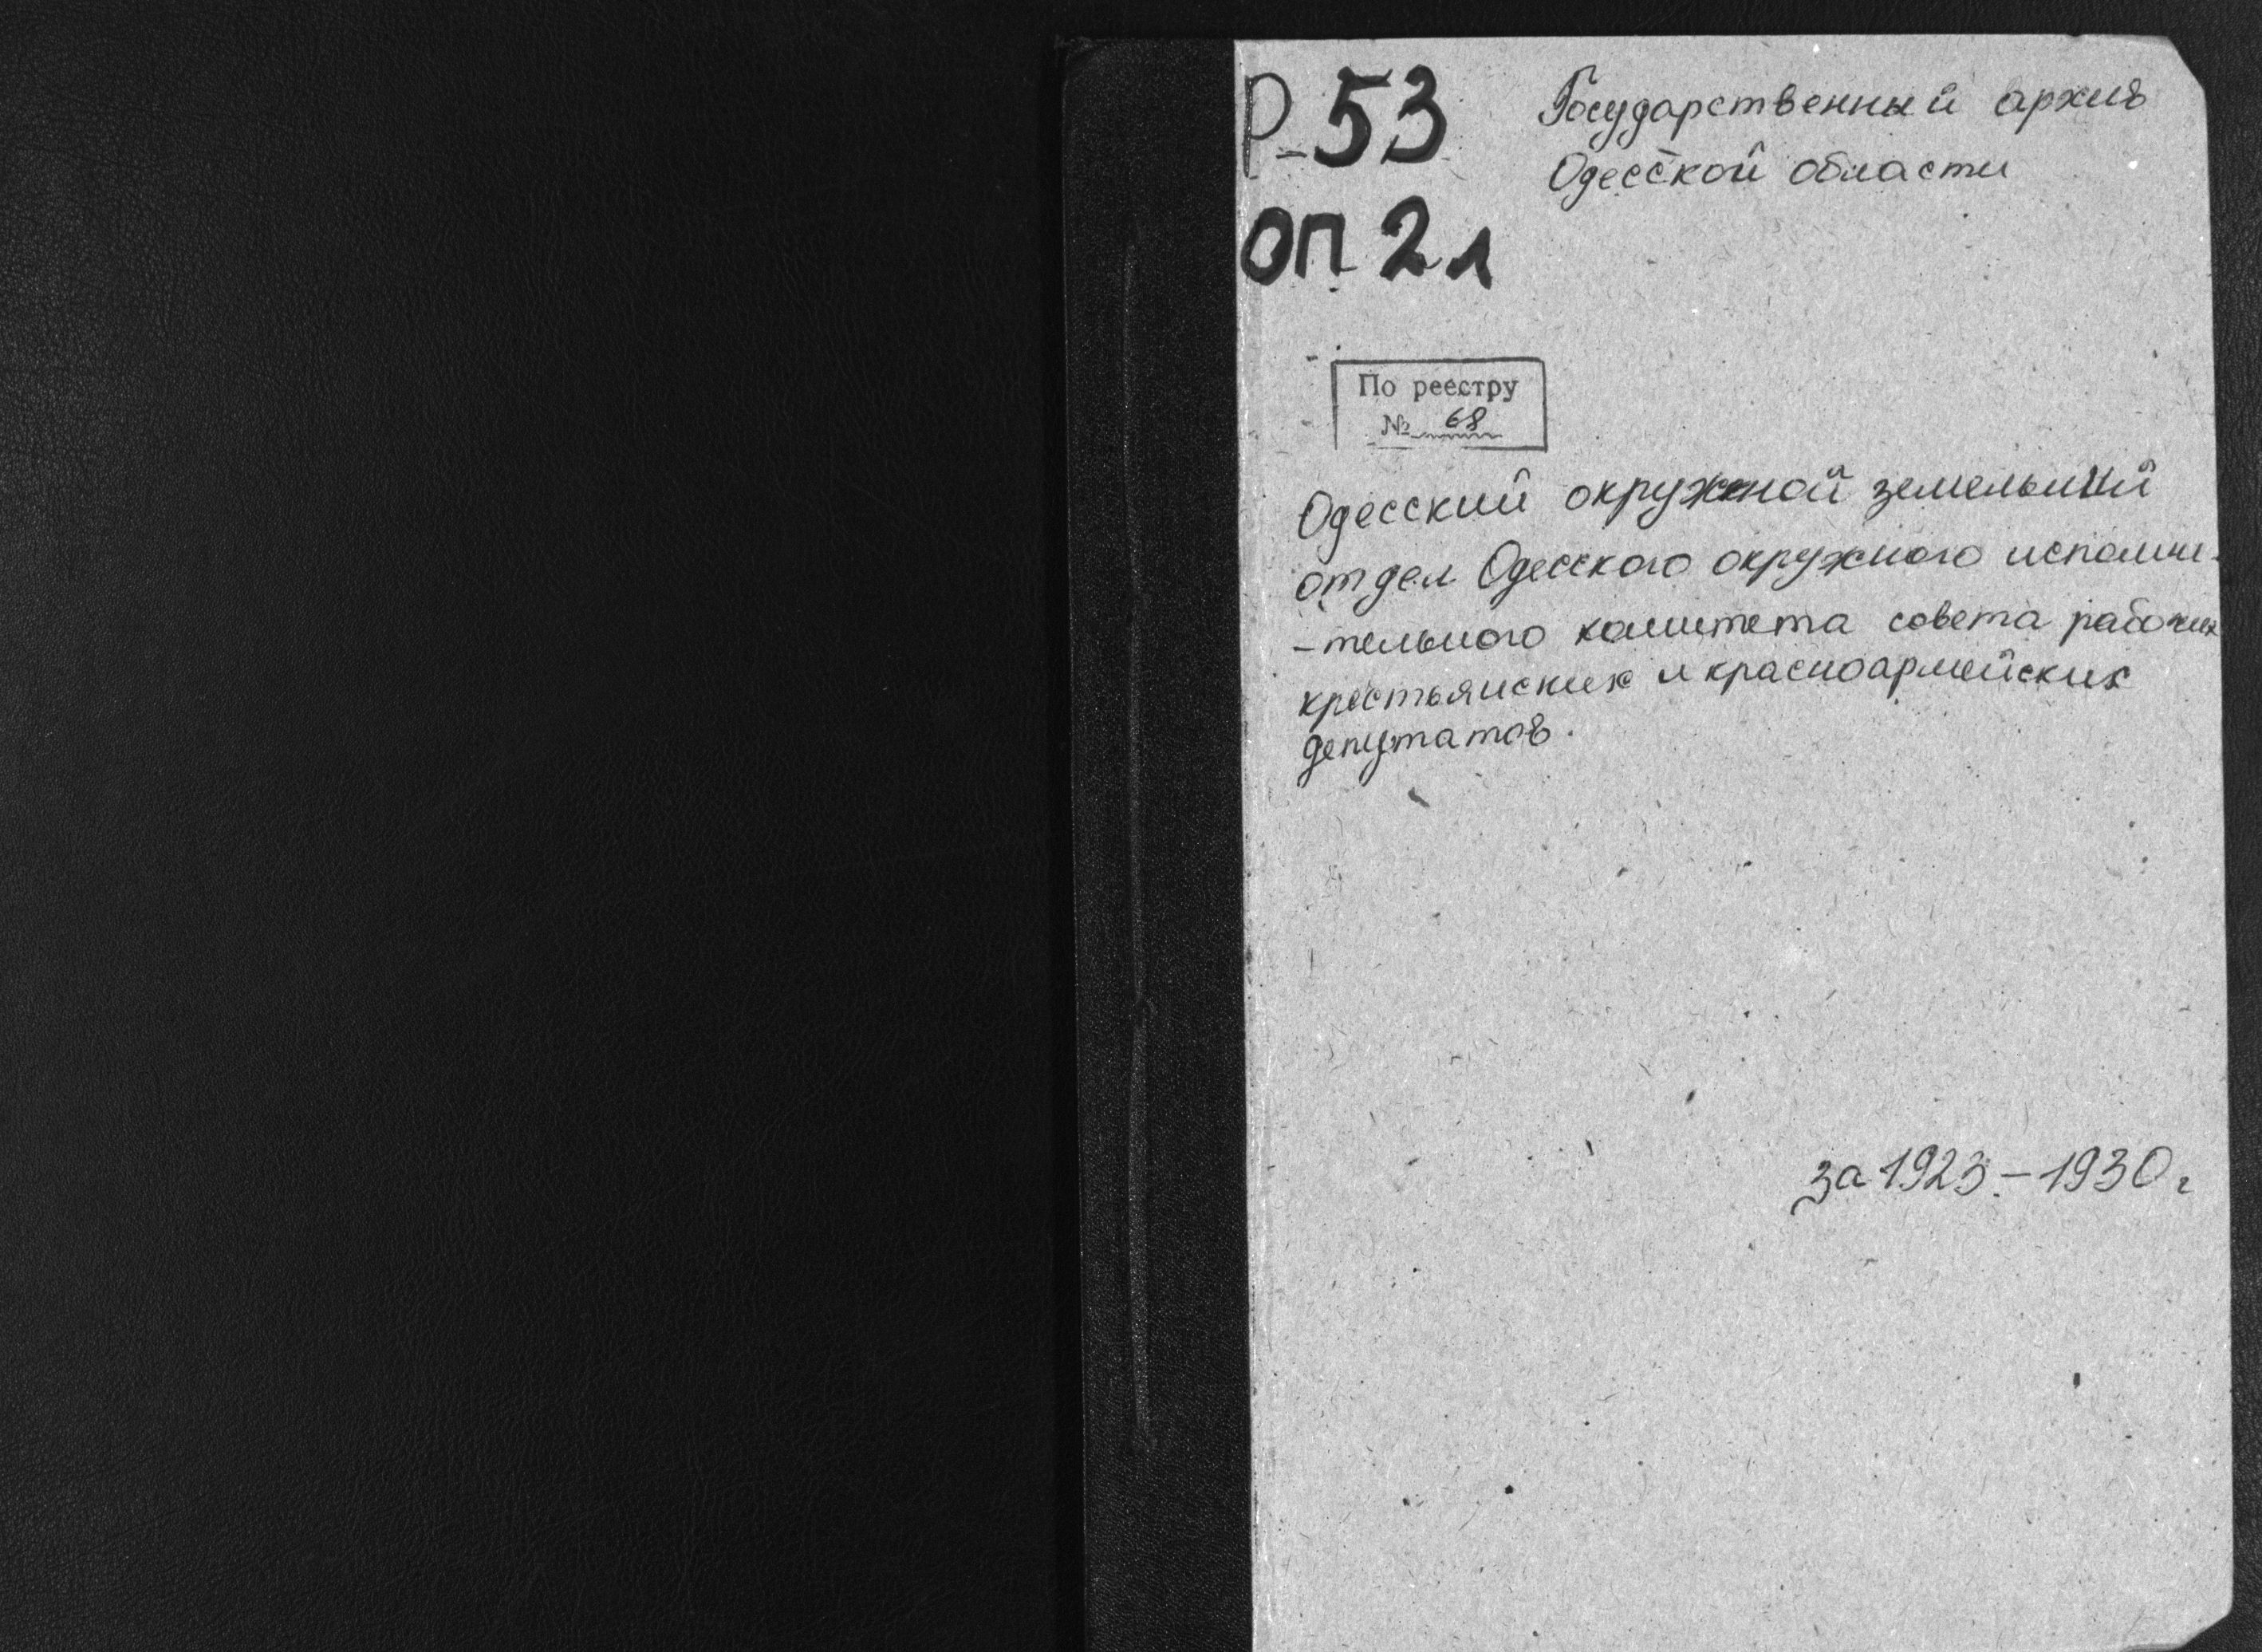 Р-53
Государственный архив
Одесской области
оп 2л
По реестру
№ 68
Одесский окружной земельный
отдел Одесского окружного исполни-
-тельного комитета совета рабочих
крестьянских и красноармейских
депутатов.
за 1923-1930 г